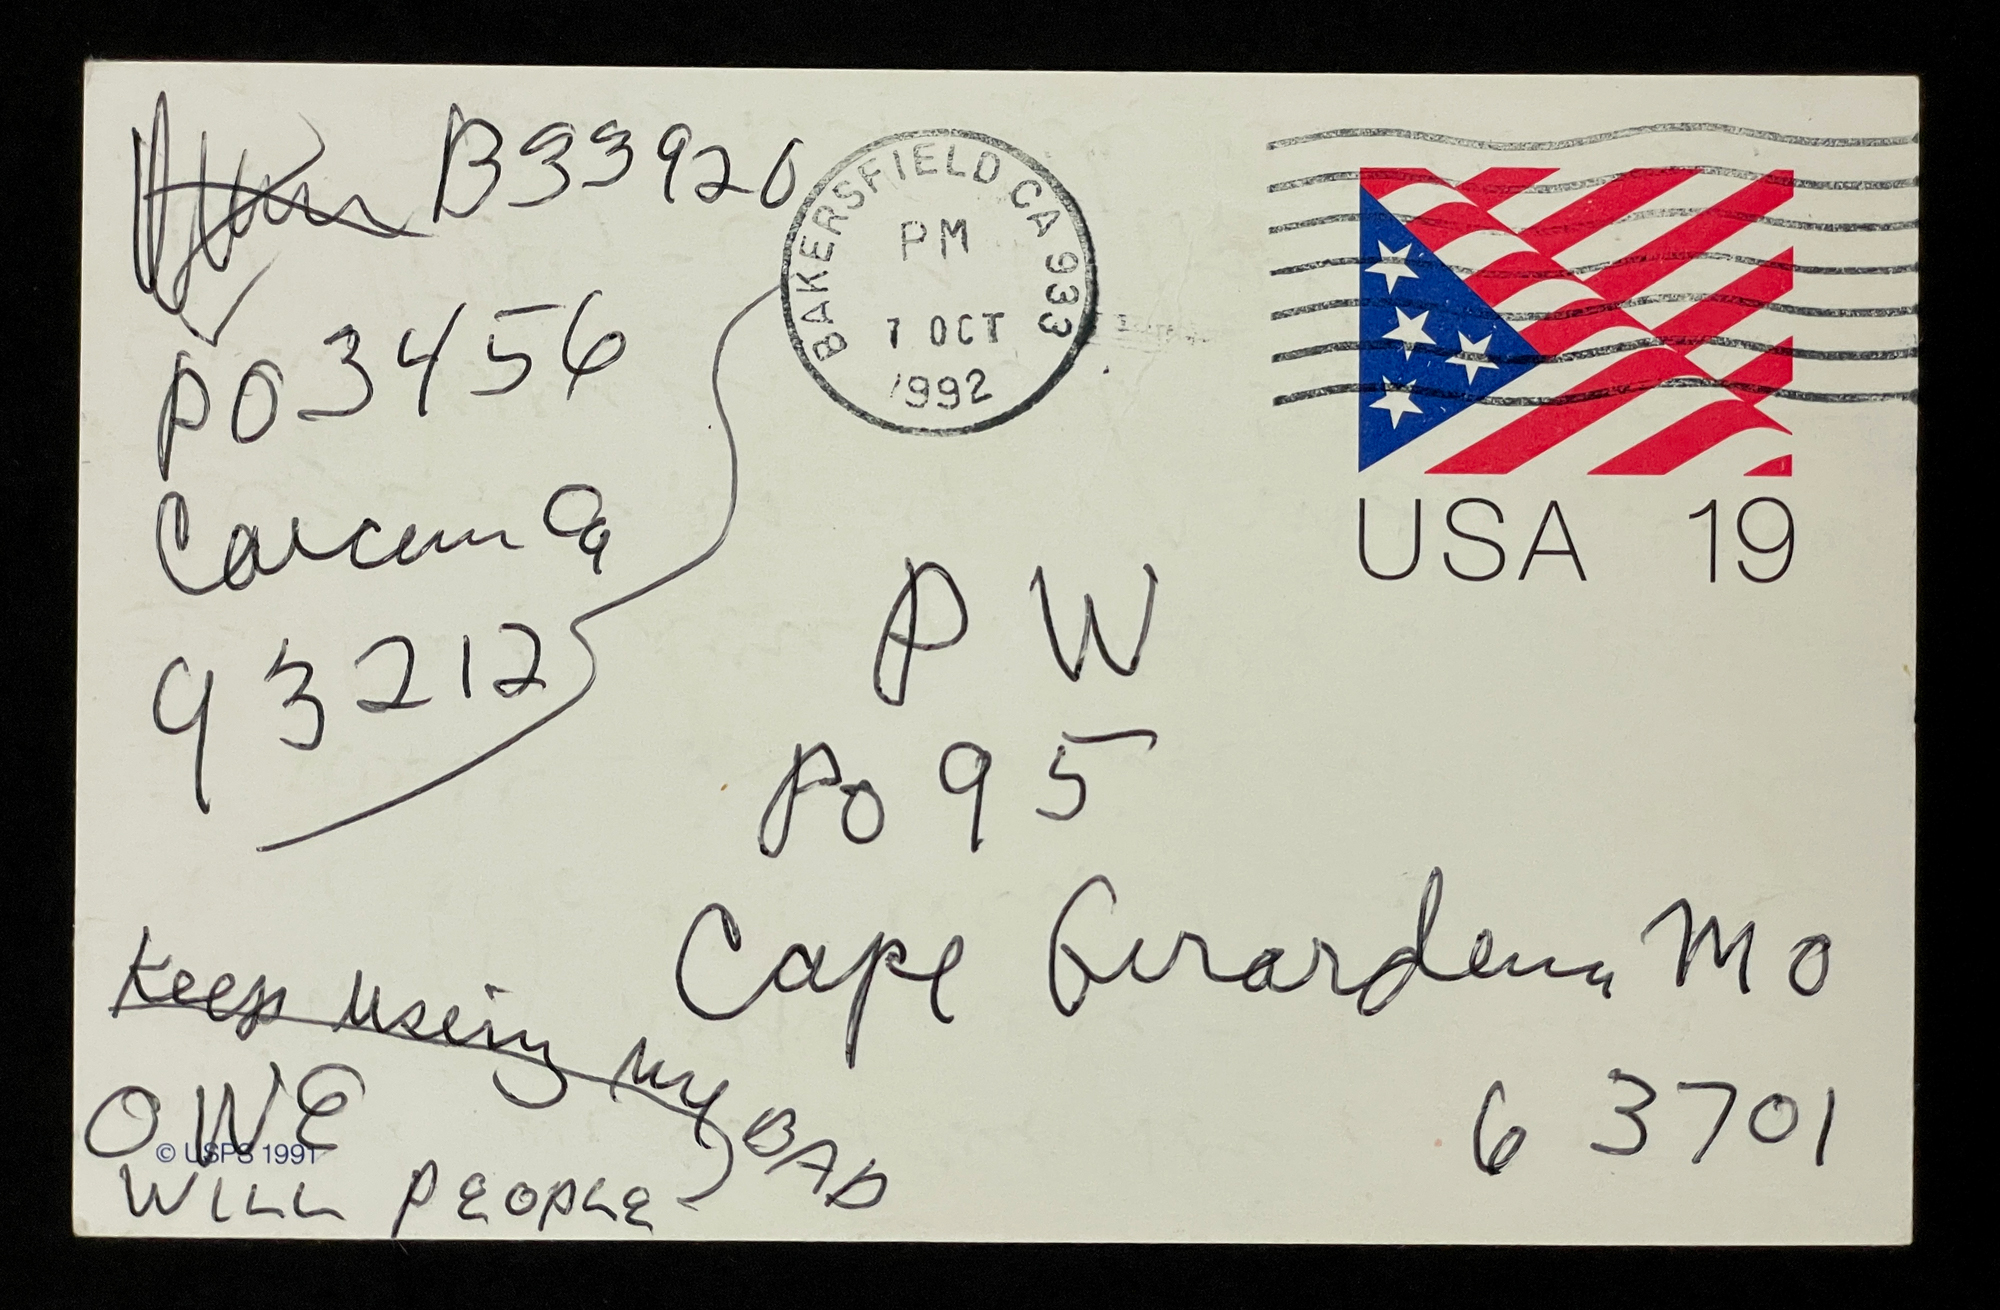 B33920
PO 3456
Corcoran Ca
93212
BAKERSFIELD CA 933
PM
7 OCT
1992
USA 19
P W
PO 95
Cape Girardeau Mo
63701
Keep using my
OWE BAD
© USPS 1991
WILL PEOPLE